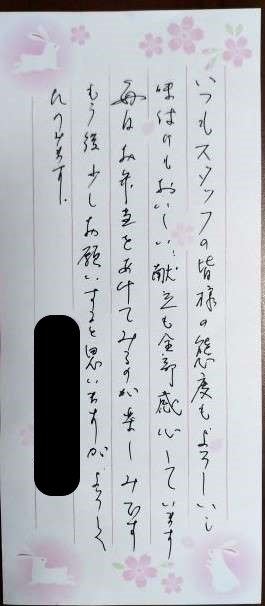 いつもスタッフの皆様の態度もよろしいし
味付けもおいしいし、献立も全部感心しています
毎日お弁当をあけてみるのが楽しみです
もう後少しお願いすると思いますが、よろしく
たのみます。